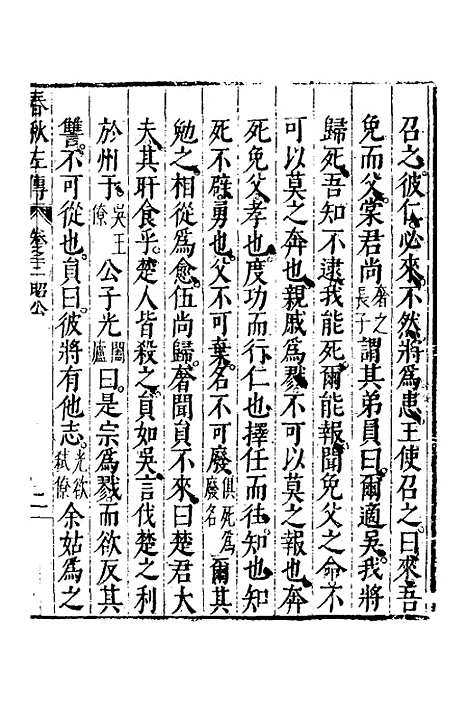 召之彼仁必來不然將爲患王使召之曰來吾
免而父棠君尚奢之長子謂其弟員曰爾適吳我將
歸死吾知不逮我能死爾能報聞免父之命不
可以莫之奔也親戚爲戮不可以莫之報也奔
死免父孝也度功而行仁也擇任而往知也知
死不辟勇也父不可棄名不可廢俱死爲廢名爾其
勉之相從爲愈伍尚歸奢聞員不來曰楚君大
夫其旰食乎楚人皆殺之員如吳言伐楚之利
於州于吳王僚公子光闔廬曰是宗爲戮而欲反其
讐不可從也員曰彼將有他志光欲弑僚余姑爲之
春秋左傳 昭公 二